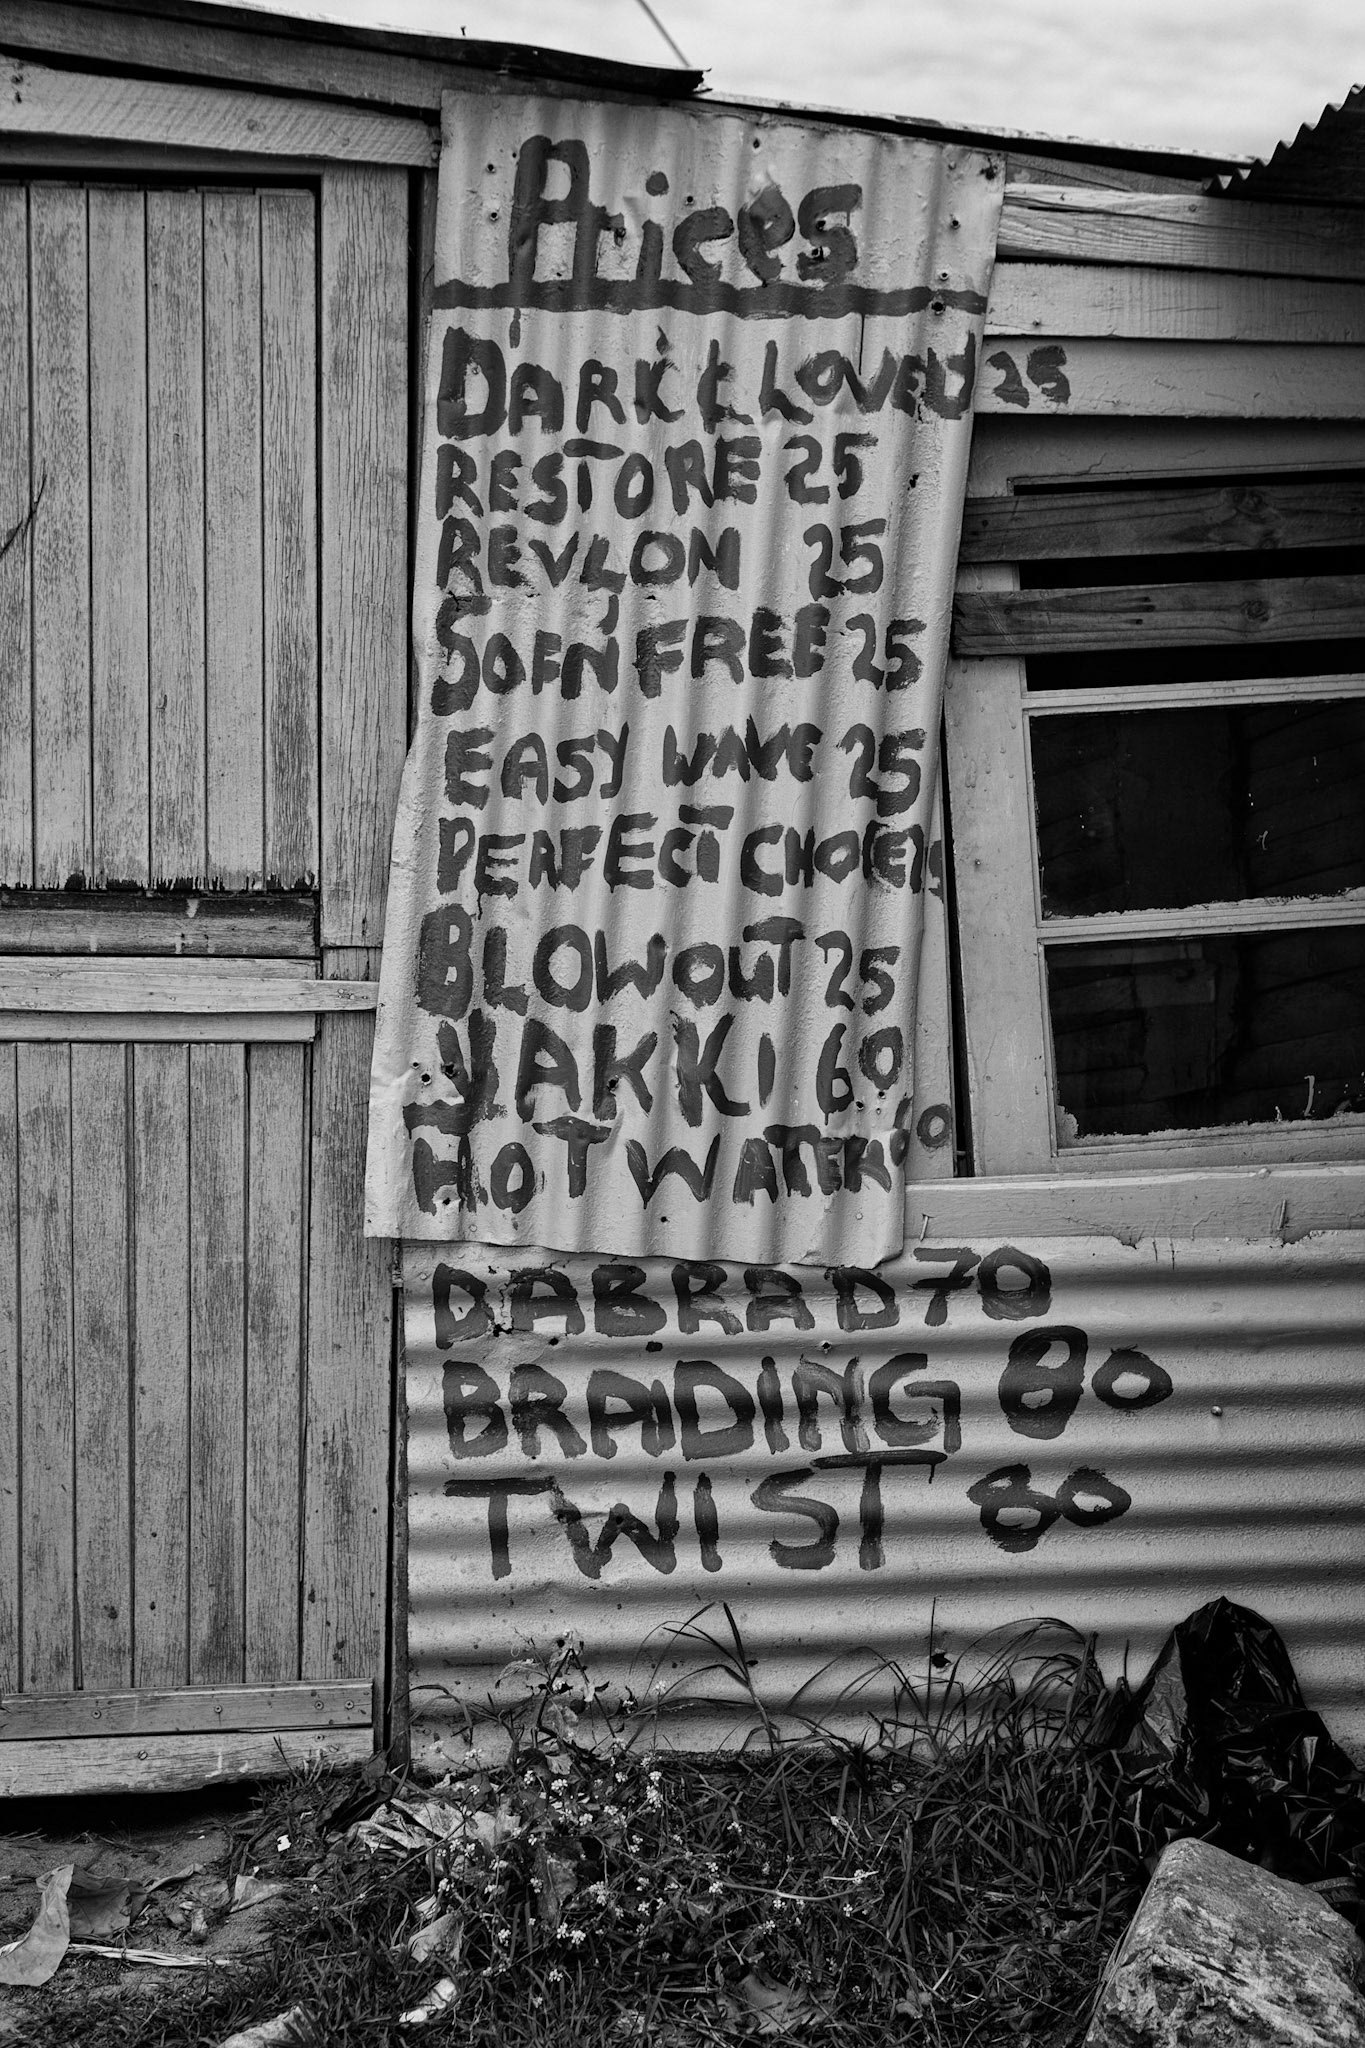 Prices
DARK & LOVELY 25
RESTORE 25
REVLON 25
SOFN'FREE 25
EASY WAVE 25
PERFECT CHOICE 25
BLOWOUT 25
YAKKI 60
HOT WATER
DABRAD 70
BRAIDING 80
TWIST 80